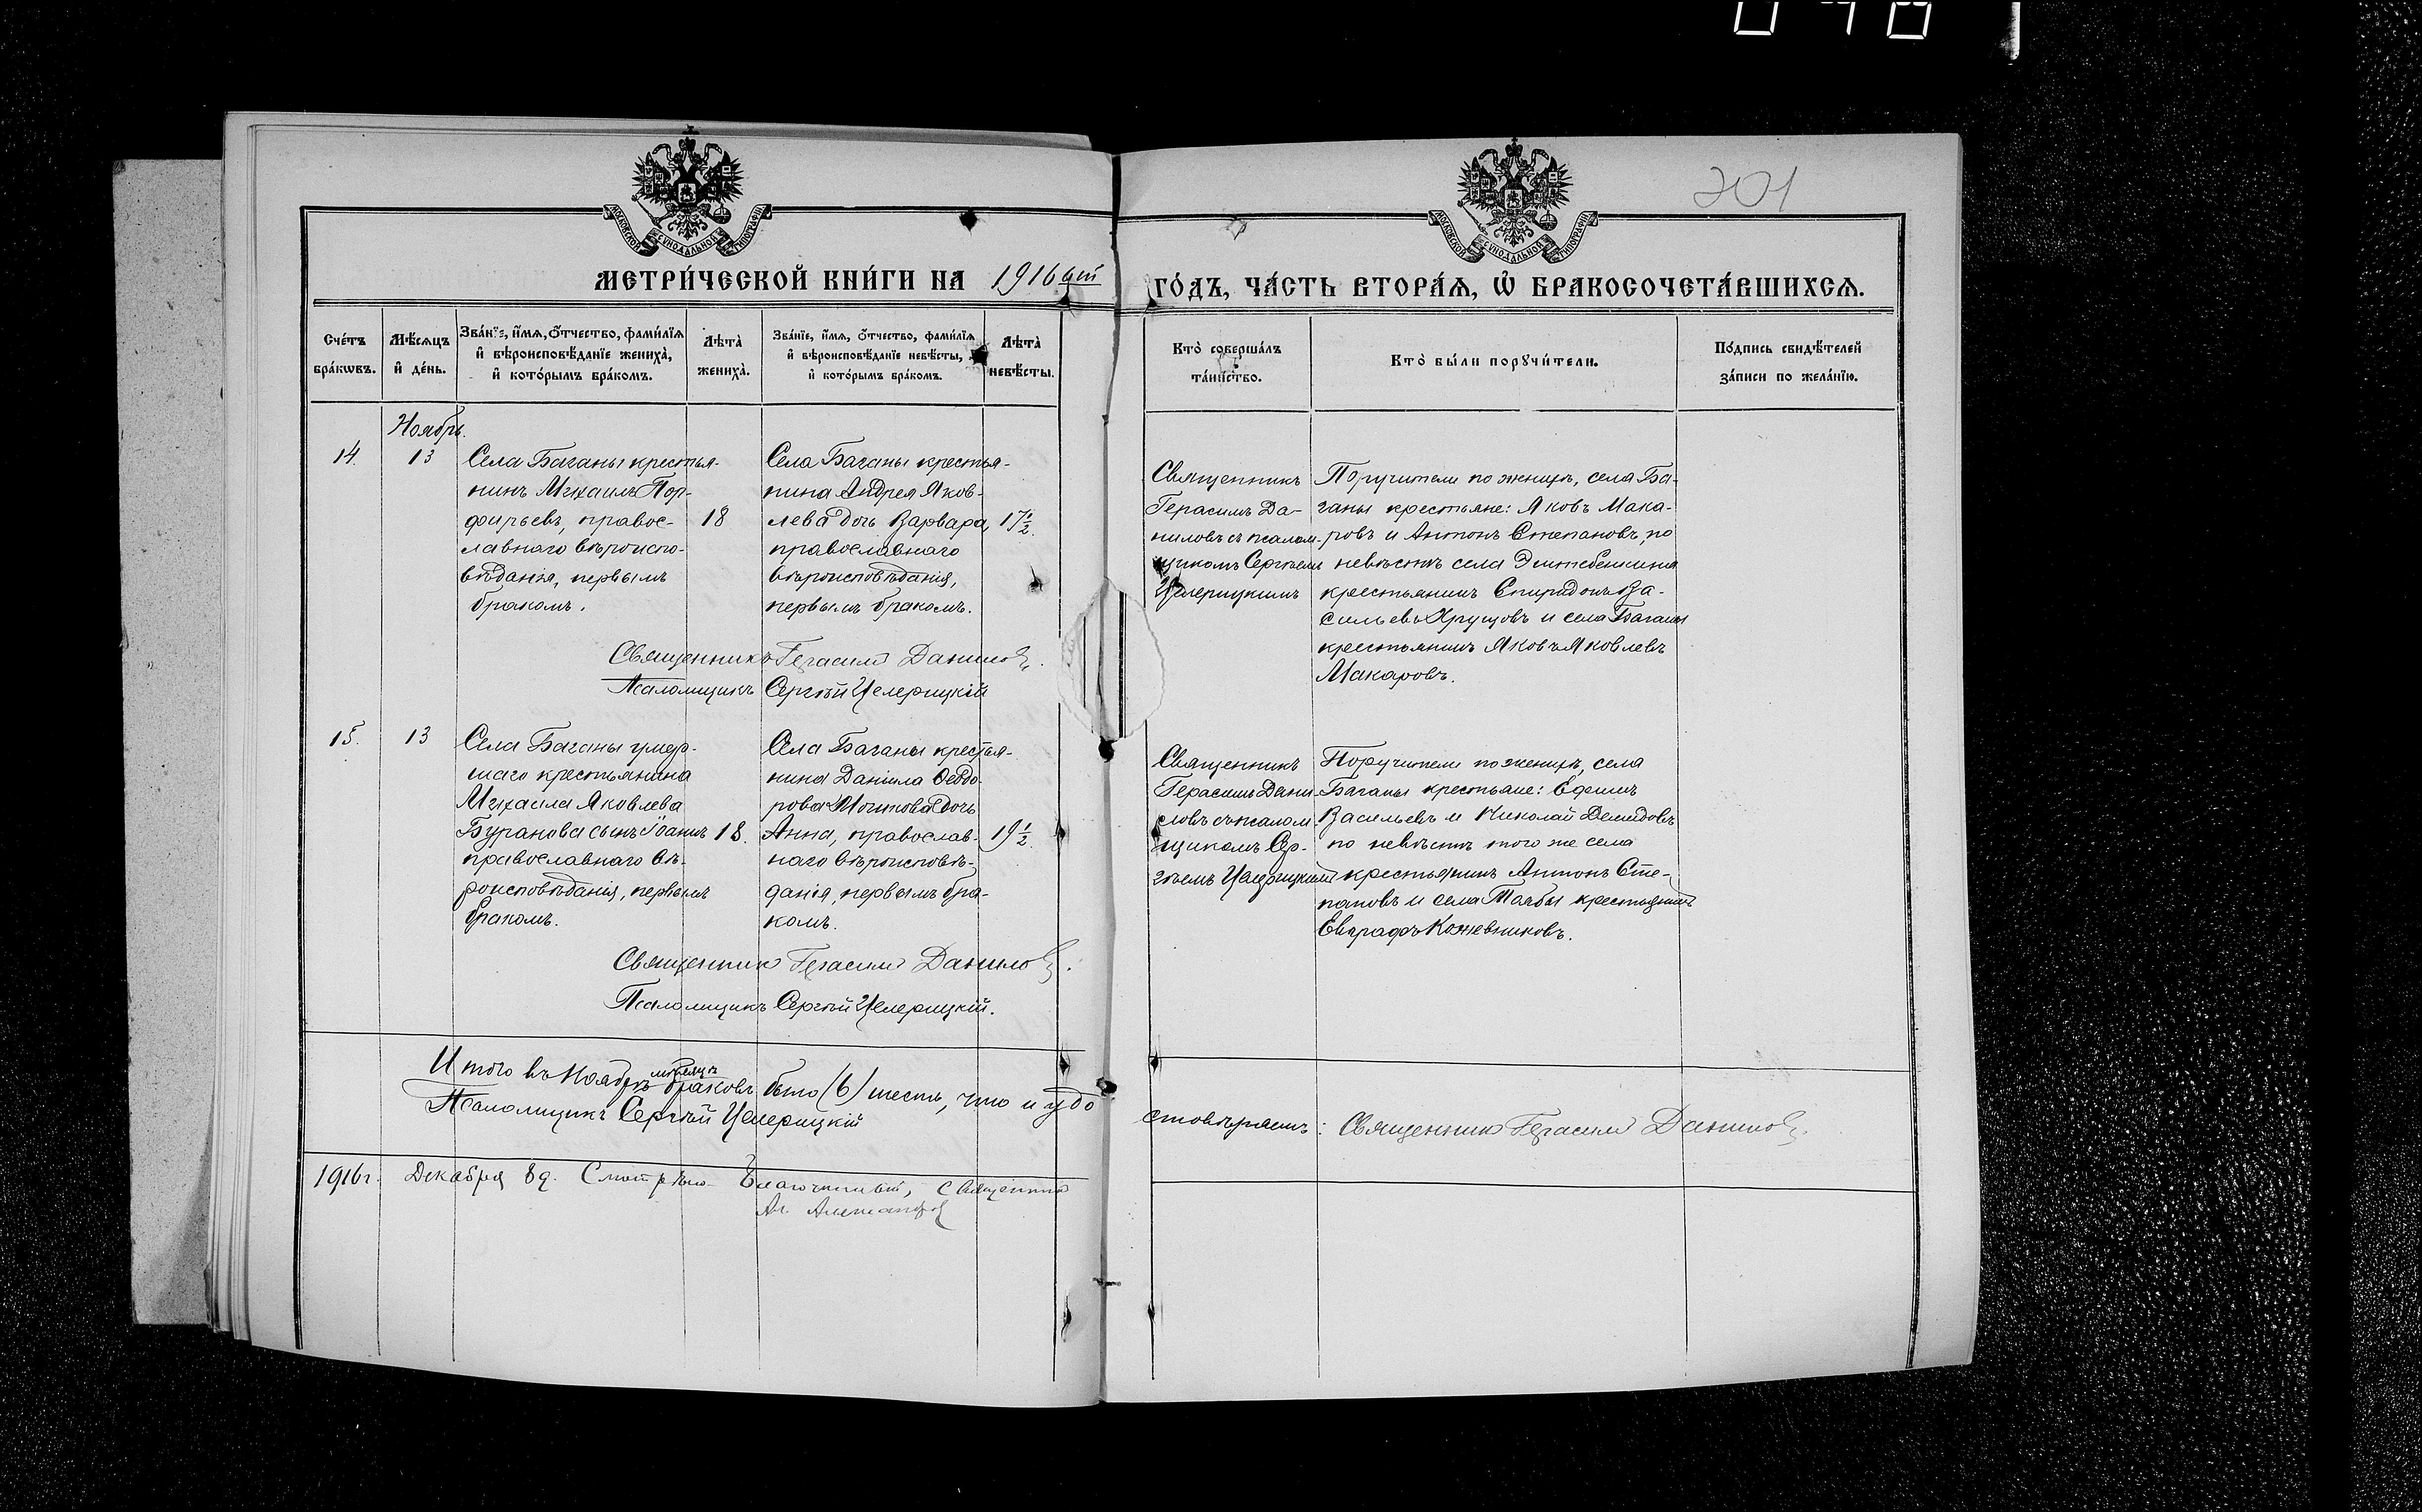 301
МОСКОВСКОЙ СУНОДАЛЬНОЙ ТИПОГРАФІИ
МОСКОВСКОЙ СУНОДАЛЬНОЙ ТИПОГРАФІИ
МЕТРИ́ЧЕСКОЙ КНИ́ГИ НА 1916 ый ГО́ДЪ, ЧА́СТЬ ВТОРА́Ѧ, Ѡ҆ БРАКОСОЧЕТА́ВШИХСѦ.
Сче́тъ бра́кѡвъ.
Мѣ́сѧцъ и҆ де́нь.
Зва́нїе, и҆́мѧ, о҆́тчество, фами́лїѧ
и҆ вѣроисповѣ́данїе жениха̀,
и҆ кото́рымъ бра́комъ.
Лѣта̀ жениха̀.
Зва́нїе, и҆́мѧ, о҆́тчество, фами́лїѧ
и҆ вѣроисповѣ́данїе невѣ́сты,
и҆ кото́рымъ бра́комъ.
Лѣта̀ невѣ́сты.
Кто̀ соверша́лъ
та́инство.
Кто̀ бы́ли порꙋчи́тели.
По́дпись свидѣ́телей
за́писи по жела́нїю.
Ноябрь.
14.
13
Села Баганы крестья-
нинъ Михаилъ Пор-
фирьевъ, правос-
лавнаго вѣроиспо-
вѣданія, первымъ
бракомъ.
18
Села Баганы крестья-
нина Андрея Яков-
лева дочь Варвара,
православнаго
вѣроисповѣданія,
первымъ бракомъ.
17½.
Священникъ
Герасимъ Да-
ниловъ съ псалом-
щикомъ Сергѣемъ
Поручители по женихѣ, села Ба-
ганы крестьяне: Яковъ Мака-
ровъ и Антонъ Степановъ, по
невѣстѣ села
крестьянинъ Спиридонъ Ва-
сильевъ Хрущовъ и села Баганы
крестьянинъ Яковъ Яковлевъ
Макаровъ.
Священникъ Герасимъ Даниловъ.
Псаломщикъ Сергѣй
15.
13
Села Баганы умер-
шаго крестьянина
Михаила Яковлева
Буранова сынъ Іоаннъ
православнаго вѣ-
роисповѣданія, первымъ
бракомъ.
18.
Села Баганы крестья-
нина Даніила Ѳеодо-
рова дочь
Анна, православ-
наго вѣроисповѣ-
данія, первымъ бра-
комъ.
19½.
Священникъ
Герасимъ Дани-
ловъ съ псалом-
щикомъ Сер-
гѣемъ
Поручители по женихѣ, села
Баганы крестьяне: Ефимъ
Васильевъ и Николай Демидовъ
по невѣстѣ того же села
крестьянинъ Антонъ Сте-
пановъ и села крестьянинъ
Евграфъ Кожевниковъ.
Священникъ Герасимъ Даниловъ.
Псаломщикъ Сергѣй
Итого въ Ноябрѣ мѣсяцѣ браковъ было (6) шесть, что и удо
стовѣряемъ: Священникъ Герасимъ Даниловъ.
Псаломщикъ Сергѣй
1916 г. Декабря 8 д. Смотрѣлъ Благочинный, Священникъ
Ал. Александров